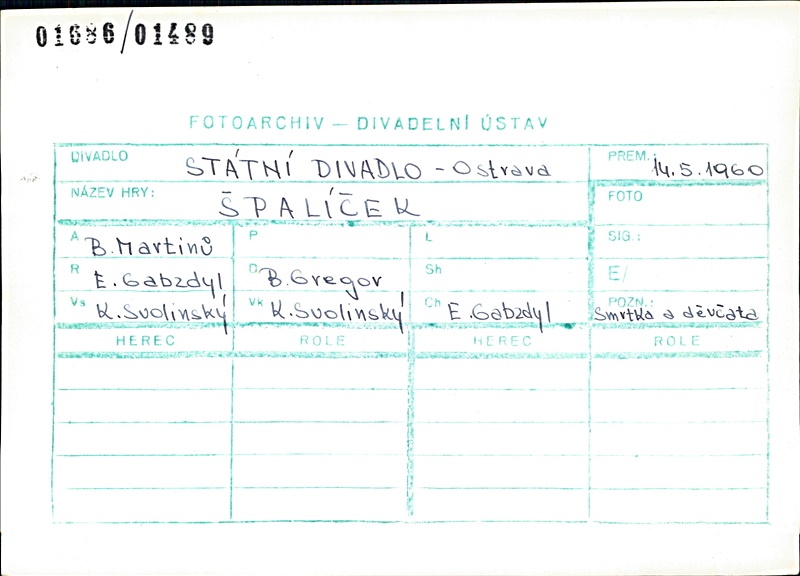 01686/01489
FOTOARCHIV — DIVADELNÍ ÚSTAV
DIVADLO STÁTNÍ DIVADLO - Ostrava PREM.: 14.5.1960
NÁZEV HRY: ŠPALÍČEK FOTO
A B. Martinů P L SIG.:
R E. Gabzdyl D B. Gregor Sh E/
Vs K. Svolinský Vk K. Svolinský Ch E. Gabzdyl POZN.: Smrtka a děvčata
HEREC ROLE HEREC ROLE